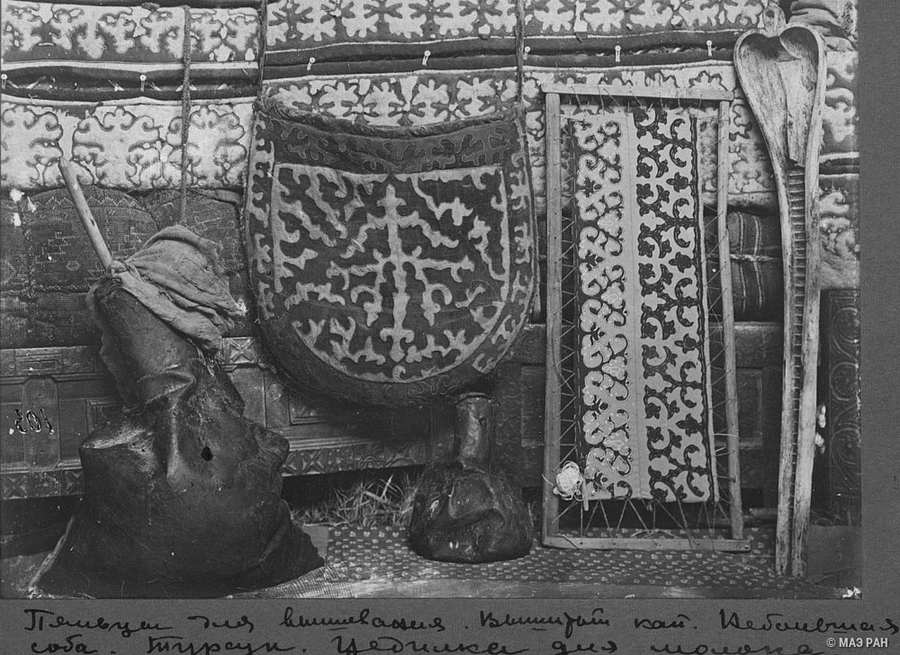 Пяльцы для вышивания. Вышитый кап. Небольшая
соба. Турсук. Цедилка для молока
© МАЭ РАН